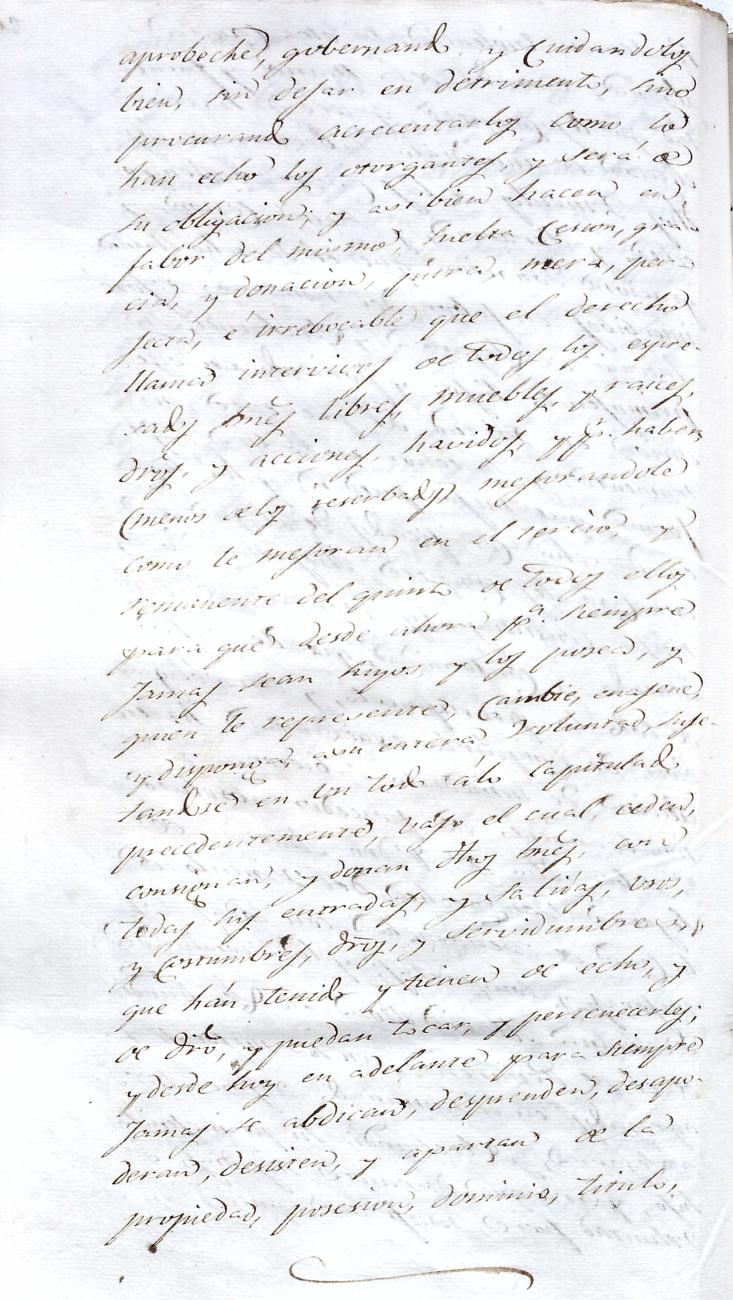 aprobeche, gobernand. y Cuidandolos
bien, sin dejar en detrimento, sino
procurand acrecentarlos como lo
han echo los otorgantes, y será de
su obligacion; y asi bien hacen en
fabor del mismo, suelta Cesion, gra-
cia, y donacion, pura, mera, per-
fecta, é irrebocable que el derecho
llama intervivos de todos los expre-
sads bnes libres, muebles, y raices,
dros, y acciones, havidos, y pr. haber,
(menos delos reserbads) mejorandole
como le mejoran en el tercio, y
remanente del quinto de todos ellos
para que desde ahora pa. siempre
Jamas sean suyos y los posea, y
quien le represente, Cambie, enajene,
y disponga, a su entera Voluntad, suje-
tandse en un tod álo Capitulad
precedentemente, vajo el cual, ceden,
consignan, y donan dhos bnes, con
todas sus entradas, y salidas, usos,
y Costumbres, dros, y servidumbres,
que hán tenido y tienen de echo, y
de dro, y puedan tocar, y pertenecerles;
y desde hoy en adelante para siempre
Jamas se abdican, desprenden, desapo-
deran, desisten, y apartan de la
propiedad, posesion, dominio, titulo,